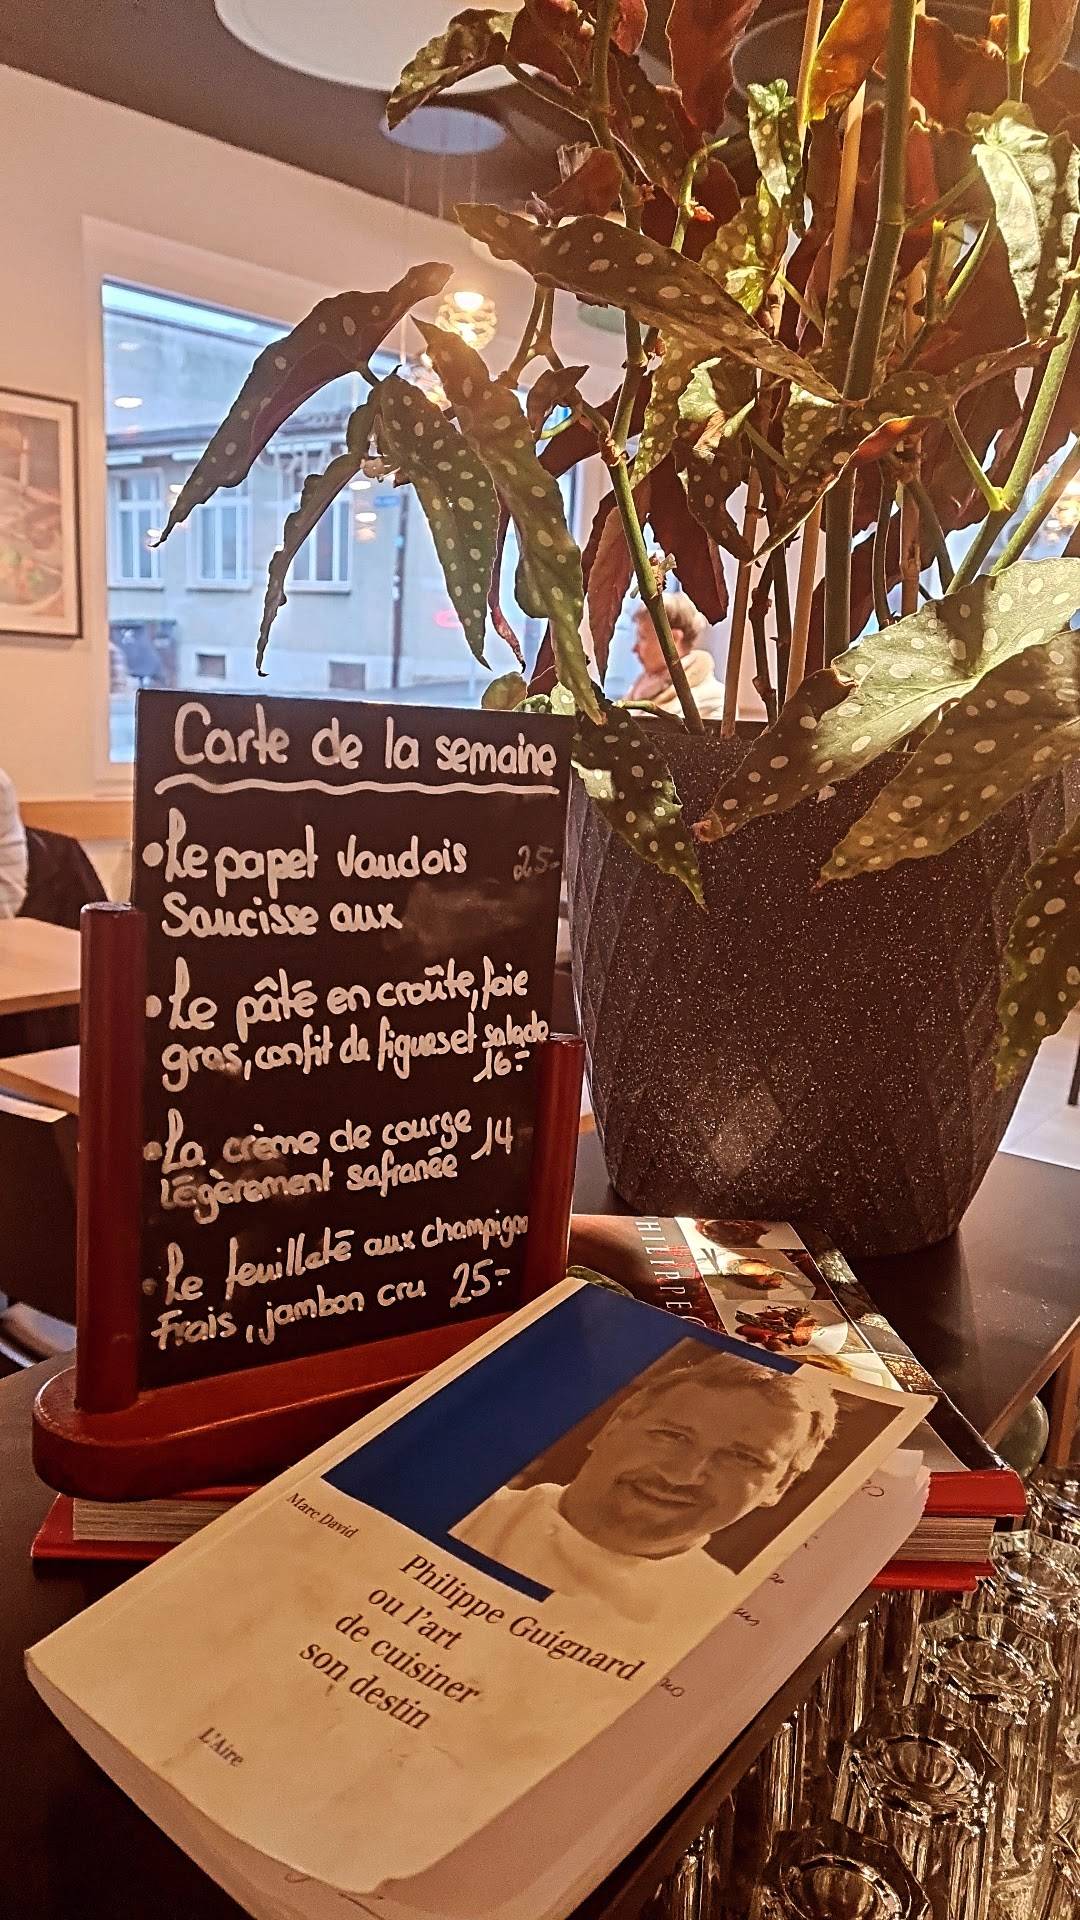 Carte de la semaine
•Le papet Vaudois 25.-
Saucisse aux
•Le pâté en croûte, foie
gras, confit de figues et salade
16.-
•La crème de courge 14
Légèrement safranée
•Le feuilleté aux champignon
Frais, jambon cru 25.-
PHILIPPE
Marc David
Philippe Guignard
ou l'art
de cuisiner
son destin
L'Aire